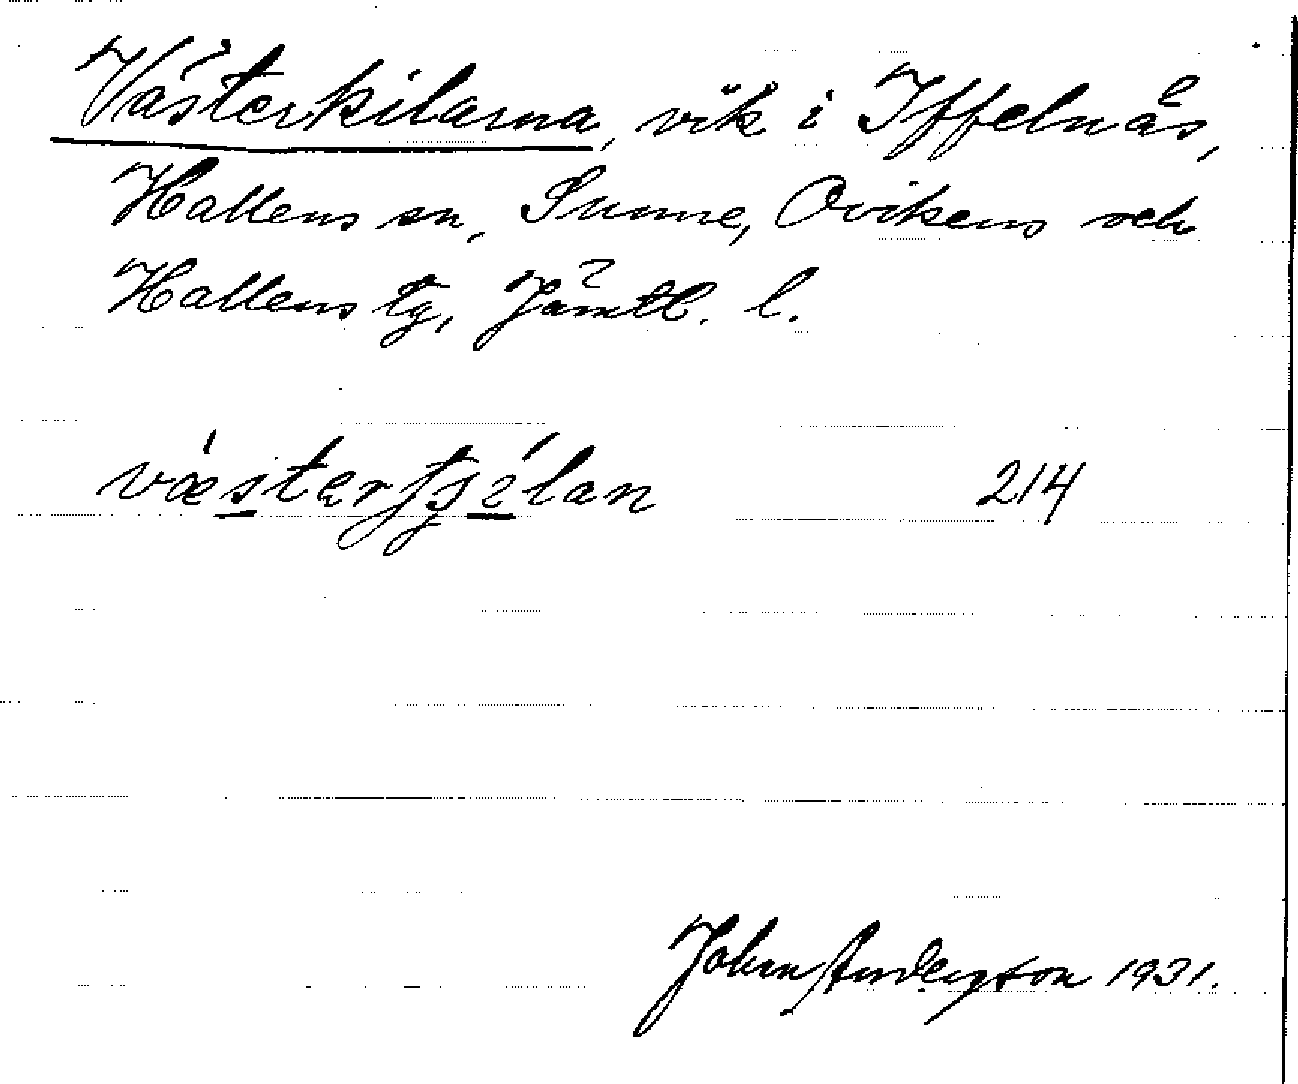 Västerkilarna, vik i Iffelnäs,
Hallens sn, Sunne, Ovikens och
Hallens tg, Jämtl. l.
214
Johan Anderson 1931.